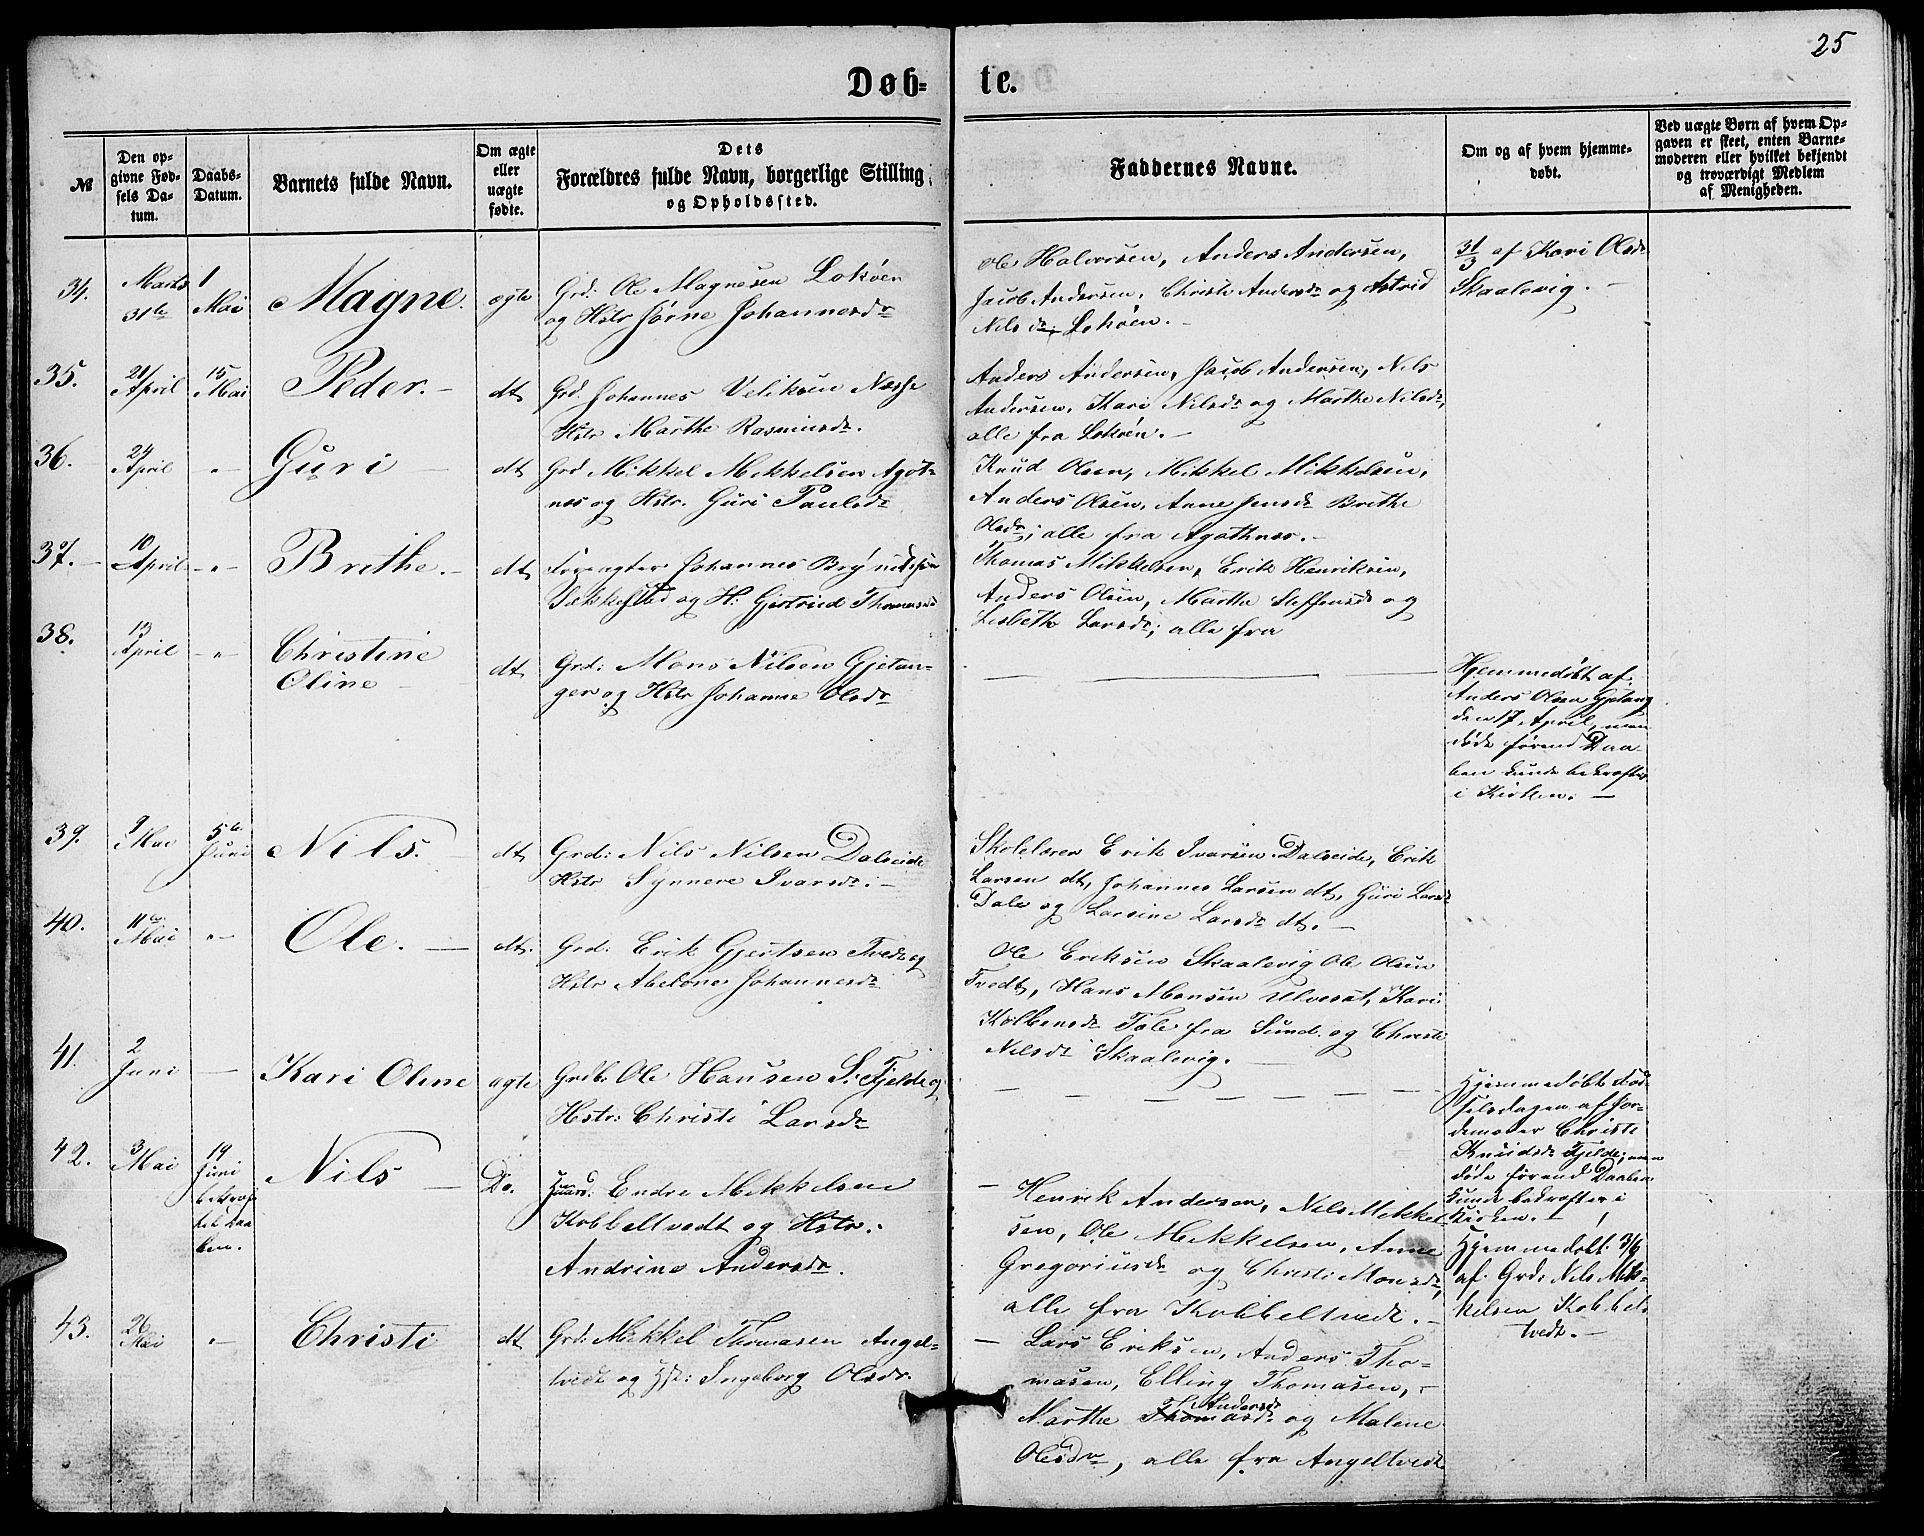 25
Døb-
te.
№
Den op-
givne Fød-
sels Da-
tum.
Daabs-
Datum.
Barnets fulde Navn.
Om ægte
eller
uægte
fødte.
Dets
Forældres fulde Navn, borgerlige Stilling
og Opholdssted.
Faddernes Navne.
Om og af hvem hjemme-
døbt.
Ved uægte Børn af hvem Op-
gaven er skeet, enten Barne-
moderen eller hvilket bekjendt
og troværdigt Medlem
af Menigheden.
34.
Marts
31te
1
Mai
Magne.
ægte
Grd. Ole Magnesen Lokøen
og Hstr Jørne Johannesdr
Ole Halvorsen, Anders Andersen,
Jacob Andersen, Christi Andersdr og Astrid
Nilsdr Lokøen.
31/3 af Kari Olsdr
Skaalevig.
35.
21/
April
15
Mai
Peder.
dt
Grd. Johannes Næsse
Hstr Marthe Rasmusdr.
Anders Andersen, Jacob Andersen, Nils
Andersen, Kari Nilsdr og Marthe Nilsdr,
alle fra Lokøen.
36.
24
April
"
Guri
dt
Grd Mikkel Mikkelsen Agot-
nes og Hstr. Guri Paulsdr
Knud Olsen, Mikkel Mikkelsen,
Anders Olsen, Anne Jensdr Brithe
Olsdr; alle fra Agothnes.
37.
10
April
"
Brithe.
dt
Johannes Brynildsen
Tækkestad og H: Gjertrud Thomasdr
Thomas Mikkelsen, Erik Henriksen,
Anders Olsen, Marthe Steffensdr og
Lisbeth Larsdr; alle fra
38.
13
April
"
Christine
Oline
dt
Grd: Mons Nilsen Gjetan-
ger og Hstr Johanne Olsdr
Hjemmedøbt af
Anders Olsen Gjetang
den 17 April, men
døde førend Daa-
ben kunde bekræftes
i Kirken.
39.
9
Mai
5te
Juni
Nils.
dt
Grd: Nils Nilsen Dalseide
Hstr Synneve Ivarsdr:
Skolelærer Erik Ivarsen Dalseide, Erik
Larsen dt, Johannes Larsen dt, Guri Larsdr
Dale og Larsine Larsdr dt.
40.
11te
Mai
"
Ole.
dt.
Grd: Erik Gjertsen Tvedt og
Hstr Abelone Johannesdr
Ole Eriksen Skaalevig Ole Olsen
Tvedt, Hans Monsen Ulveset, Kari
Kolbensdr Tøle fra Sund og Christi
Nilsdr Skaalevig.
41.
2
Juni
Kari Oline
ægte
Grdb. Ole Hansen S: Fjelde og
Hstr: Christi Larsdr
Hjemmedøbt Fød-
selsdagen af Jor-
demoder Christi
Knudsdr Fjelde; men
døde førend Daaben
kunde bekræftes i
Kirken.
42.
3
Mai
19
Juni
bekræf-
tet Daa
ben.
Nils
Do.
Huusd. Endre Mikkelsen
Kobbeltvedt og Hstr:
Andrine Andersdr.
Henrik Andersen, Nils Mikkel-
sen, Ole Mikkelsen, Anne
Gregoriusdr og Christi Monsdr,
alle fra Kobbeltvedt.
Hjemmedøbt 3/6
af Grd: Nils Mik-
kelsen Kobbel-
tvedt.
43.
26
Mai
"
Christi
dt
Grd: Mikkel Thomasen Angel-
tvedt og Hst: Ingeborg Olsdr.
Lars Eriksen, Anders Tho-
masen, Elling Thomasen,
Andersdr
Marthe Thomasdr og Malene
Olsdr, alle fra Angeltvedt